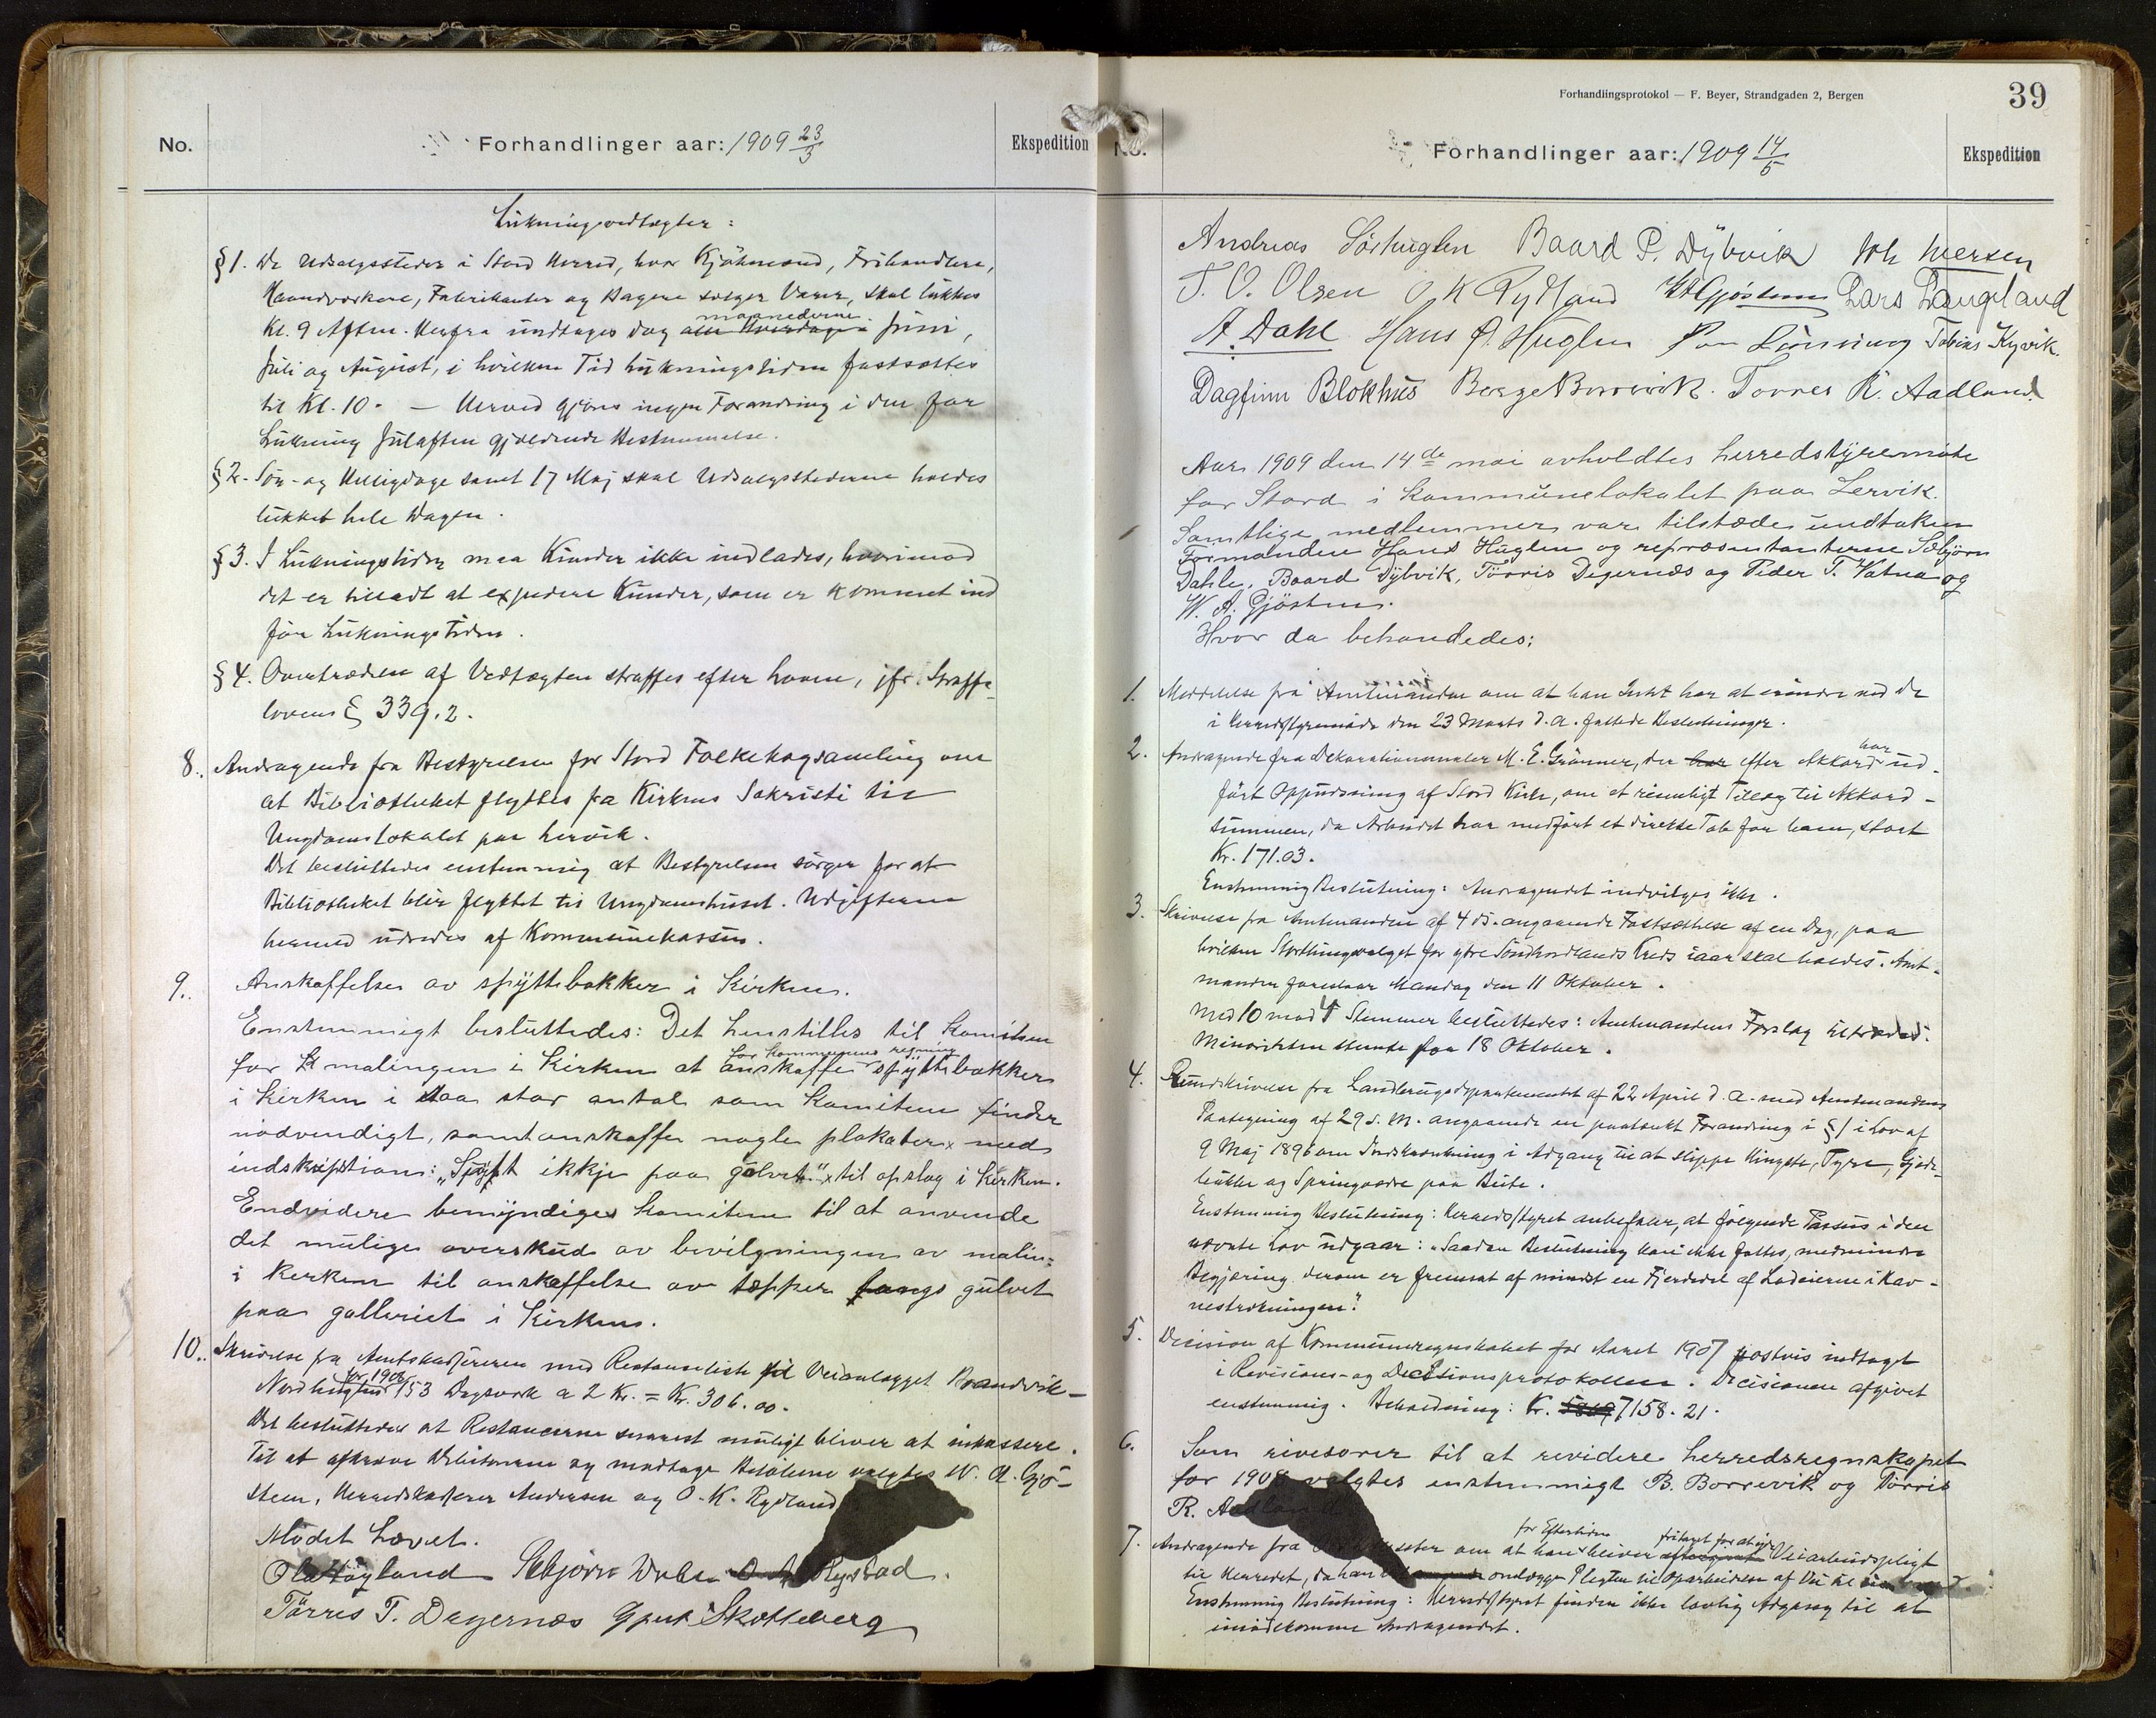 No.
Forhandlinger aar: 1909 23/3
Ekspedition
Lukningsvedtægter:
§ 1. De Udsalgssteder i Stord Herred, hvor Kjøbmænd, Frihandlere,
Haandværkere, Fabrikanter og Bagere sælger Varer, skal lukkes
Kl. 9 Aften. Herfra undtages dog alle Hverdage i maanederne Juni,
Juli og August, i hvilken Tid Lukningstiden fastsættes
til Kl. 10. — Herved gjøres ingen Forandring i den for
Lukning Julaften gjældende Bestemmelse.
§ 2. Søn- og Helligdage samt 17 Maj skal Udsalgsstederne holdes
lukket hele Dagen.
§ 3. I Lukningstiden maa Kunder ikke indlades, hvorimod
det er tilladt at expedere Kunder, som er kommet ind
før Lukningstiden.
§ 4. Overtrædelse af Vedtægten straffes efter Loven, jfr. Straffe-
lovens § 339.2.
8. Andragende fra Bestyrelsen for Stord Folkebogsamling om
at Bibliotheket flyttes fra Kirkens Sakristi til
Ungdomslokalet paa Lervik.
Det besluttedes enstemmig at Bestyrelsen sørger for at
Bibliotheket blir flyttet til Ungdomshuset. Udgifterne
hermed udredes af Kommunekassen.
9. Anskaffelse av spyttebakker i Kirken.
Enstemmigt besluttedes: Det henstilles til Komiteen
for malingen i Kirken at for kommunens regning anskaffe spyttebakker
i Kirken i saa stor antal som Komiteen finder
nødvendigt, samt anskaffe nogle plakater x med
indskription: "Spyt ikkje paa golvet" x til opslag i Kirken.
Endvidere bemyndiges Komiteen til at anvende
det mulige overskud av bevilgningen av malin-
i Kerken til anskaffelse av tæpper langs gulvet
paa galleriet i Kirken.
10. Skrivelse fra Amtskassereren med Restanseliste til Veianlægget Brandvik-
Nordhuglen for 1908 153 Dagsverk a 2 Kr. = Kr. 306.00.
Det besluttedes at Restancerne snarest muligt bliver at inkassere.
Til at afkræve Debitorerne og modtage Beløbene valgtes W. A. Gjø-
steen, Herredskasserer Andersen og O. K. Rydland
Mødet hævet.
Ola Høyland Sebjørn Dale O. A. Rystad.
Tørres T. Dagernæs Gjert Skotteberg
Forhandlingsprotokol — F. Beyer, Strandgaden 2, Bergen
39
No.
Forhandlinger aar: 1909 14/5
Ekspedition
Andreas Sørhuglen Baard P. Dybvik Joh Iversen
T. O. Olsen O K Rydland W A Gjøsteen Lars Langeland
A. Dahl Hans J. Huglen Lønning Tobias Kyvik.
Dagfinn Blokhus Berge Borrevik. Torres R. Aadland.
Aar 1909 den 14de mai avholdtes herredstyremøte
for Stord i kommunelokalet paa Lervik.
Samtlige medlemmer var tilstæde undtaken
Formanden Hans Huglen og repræsentanterne Sebjørn
Dahle, Baard Dybvik, Tørris Degernæs og Peder T. Vatna og
W. A. Gjøsteen.
Hvor da behandledes:
1. Meddelelse fra Amtmanden om at han Intet har at erindre ved de
i Herredsstyremøde den 23 Marts d. a. fattede Beslutninger.
2. Andragende fra Dekorationsmaler M. E. Grønner, der har efter Akkord har ud-
ført Oppudsning af Stord Kirke, om et rimeligt Tillæg til Akkord-
summen, da Arbeidet har medført et direkte Tab for ham, stort
Kr. 171.03.
Enstemmig Beslutning: Andragendet indvilges ikke.
3. Skrivelse fra Amtmanden af 4 ds. angaaende Fastsættelse af en Dag, paa
hvilken Storthingsvalget for ytre Søndhordlands Kreds iaar skal holdes. Amt-
manden foreslaar Mandag den 11 Oktober.
Med 10 mod 4 Stemmer besluttedes: Amtmandens Forslag tiltrædes.
Minoriteten stemte for 18 Oktober.
4. Rundskrivelse fra Landbrugsdepartementet af 22 April d. a. med Amtmandens
Paategning af 29 s. M. angaaende en paatænkt Forandring i § 1 i Lov af
9 Maj 1896 om Indskrænkning i Adgang til at slippe Hingste, Tyre, Gjede-
bukke og Springvædre paa Beite.
Enstemmig Beslutning: Herredsstyret anbefaler, at følgende Passus i den
nævnte Lov udgaar: "Saadan Beslutning kan ikke fattes, medmindre
Begjæring derom er fremsat af mindst en Fjerdedel af Lodeierne i Hav-
nestrækningen."
5. Decision af Kommuneregnskabet for Aaret 1907 postvis indtaget
i Revisions- og Decisionsprotokollen. Decisionen afgivet
enstemmig. Beholdning: Kr. 7158.21.
6. Som revisorer til at revidere herredsregnskapet
for 1908 valgtes enstemmigt B. Borrevik og Tørris
R. Aadland
7. Andragende fra om at han for Eftertiden bliver fritaget for at yde Veiarbeidspligt
til Herredet, da han omlægge Pligten til Oparbeidelse af Vei til
Enstemmig Beslutning: Herredsstyret finder ikke lovlig Adgang til at
imødekomme Andragendet.